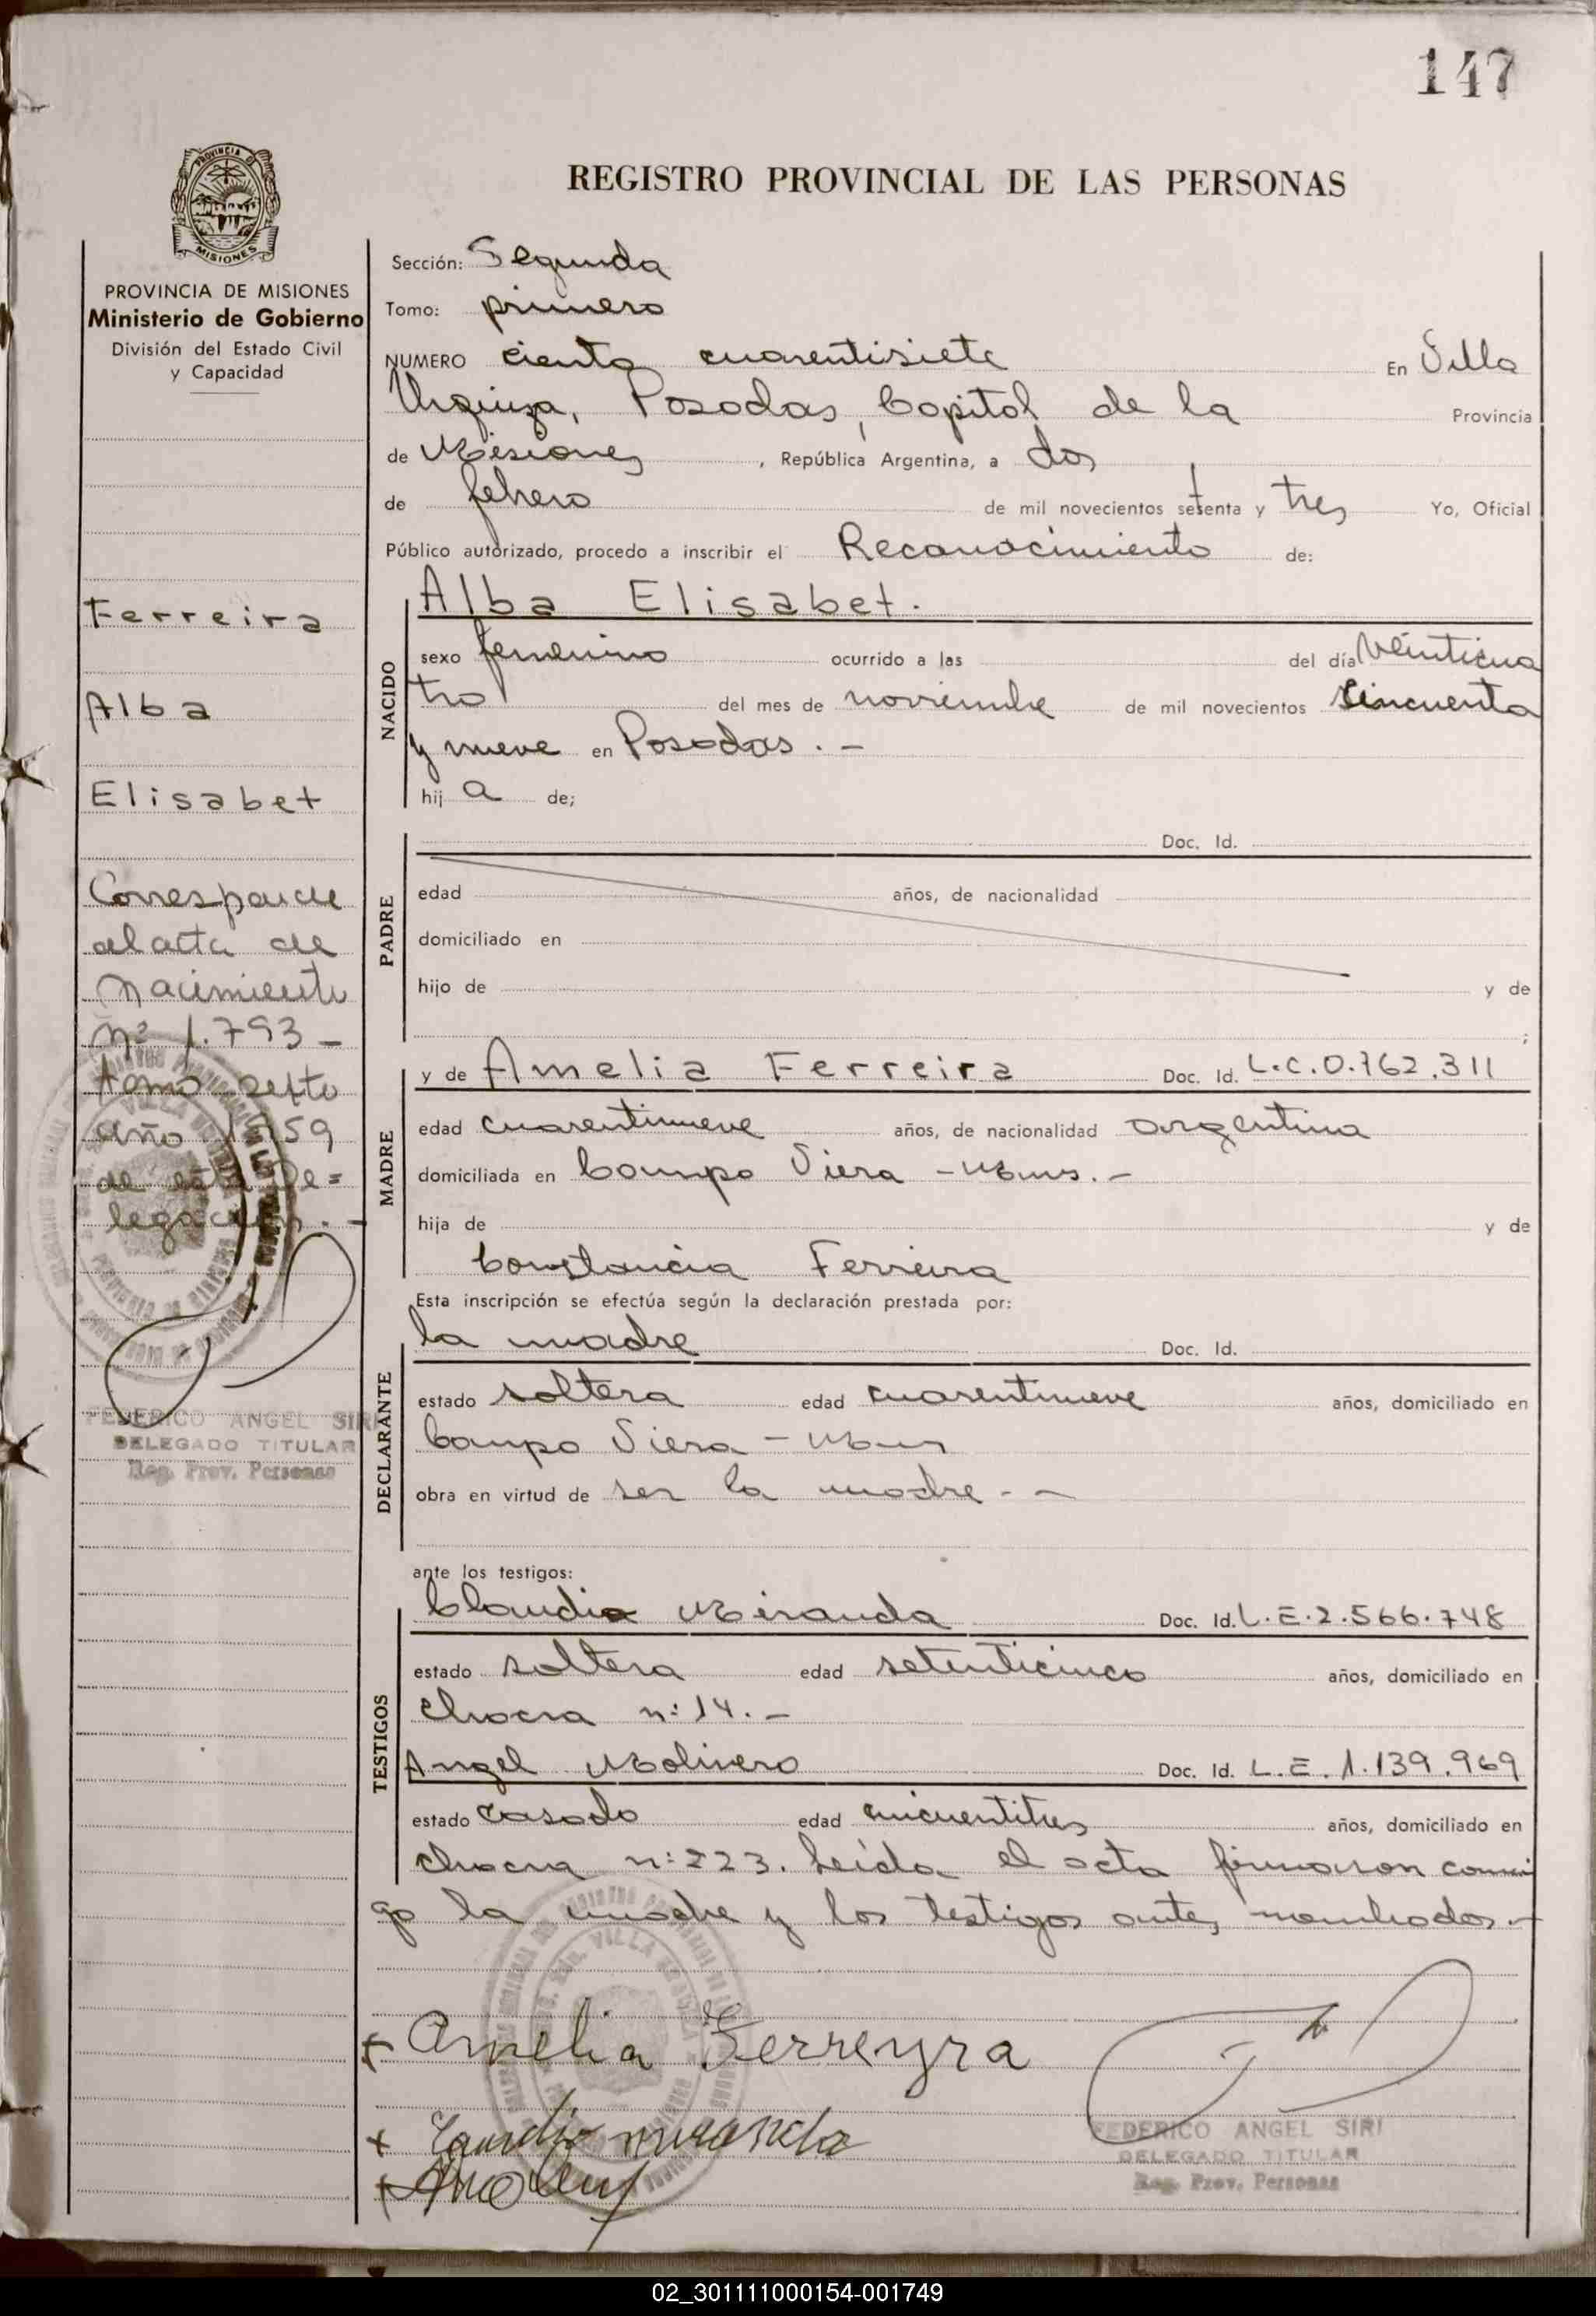 147
REGISTRO PROVINCIAL DE LAS PERSONAS
PROVINCIA DE MISIONES
Ministerio de Gobierno
División del Estado Civil
y Capacidad
Ferreira
Alba
Elisabet
Corresponde
al acta de
Nacimiento
Nº 1.793 -
tomo sexto
año 1959
de esta De=
legación. -
FEDERICO ANGEL SIRI
DELEGADO TITULAR
Reg. Prov. Personas
Sección: Segunda
Tomo: primero
NUMERO ciento cuarentisiete En Villa
Urquiza, Posadas, Capital de la Provincia
de Misiones, República Argentina, a dos
de febrero de mil novecientos setenta y tres Yo, Oficial
Público autorizado, procedo a inscribir el Reconocimiento de:
NACIDO
Alba Elisabet.
sexo femenino ocurrido a las del día veinticua
tro del mes de noviembre de mil novecientos cincuenta
y nueve en Posadas. -
hij a de;
PADRE
Doc. Id.
edad años, de nacionalidad
domiciliado en
hijo de y de
;
MADRE
y de Amelia Ferreira Doc. Id. L.C.0.762.311
edad cuarentinueve años, de nacionalidad argentina
domiciliada en Campo Viera - Mnes. -
hija de y de
Constancia Ferreira
Esta inscripción se efectúa según la declaración prestada por:
DECLARANTE
la madre Doc. Id.
estado soltera edad cuarentinueve años, domiciliado en
Campo Viera - Mnes
obra en virtud de ser la madre - -
ante los testigos:
TESTIGOS
Claudia Miranda Doc. Id. L.E.2.566.748
estado soltera edad setenticinco años, domiciliado en
chacra n: 14. -
Angel Molinero Doc. Id. L.E. 1.139.969
estado casado edad cincuentitres años, domiciliado en
chacra n: 223. Leída el acta firmaron conmi
go la madre y los testigos antes nombrados. -
+ Amelia Ferreyra
+ miranda
+
FEDERICO ANGEL SIRI
DELEGADO TITULAR
Reg. Prov. Personas
02_301111000154-001749